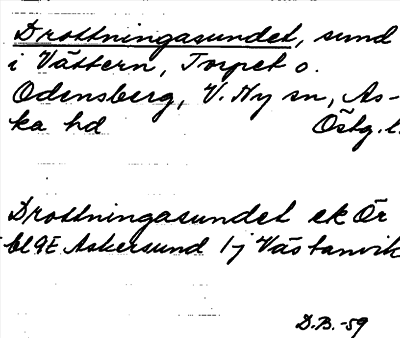 Drottningasundet, sund
i Vättern, Torpet o.
Odensberg, V. Ny sn, As-
ka hd Östg.l.
Drottningasundet ek Ör
bl 9E Askersund 1j Västanvik
D.B.-59